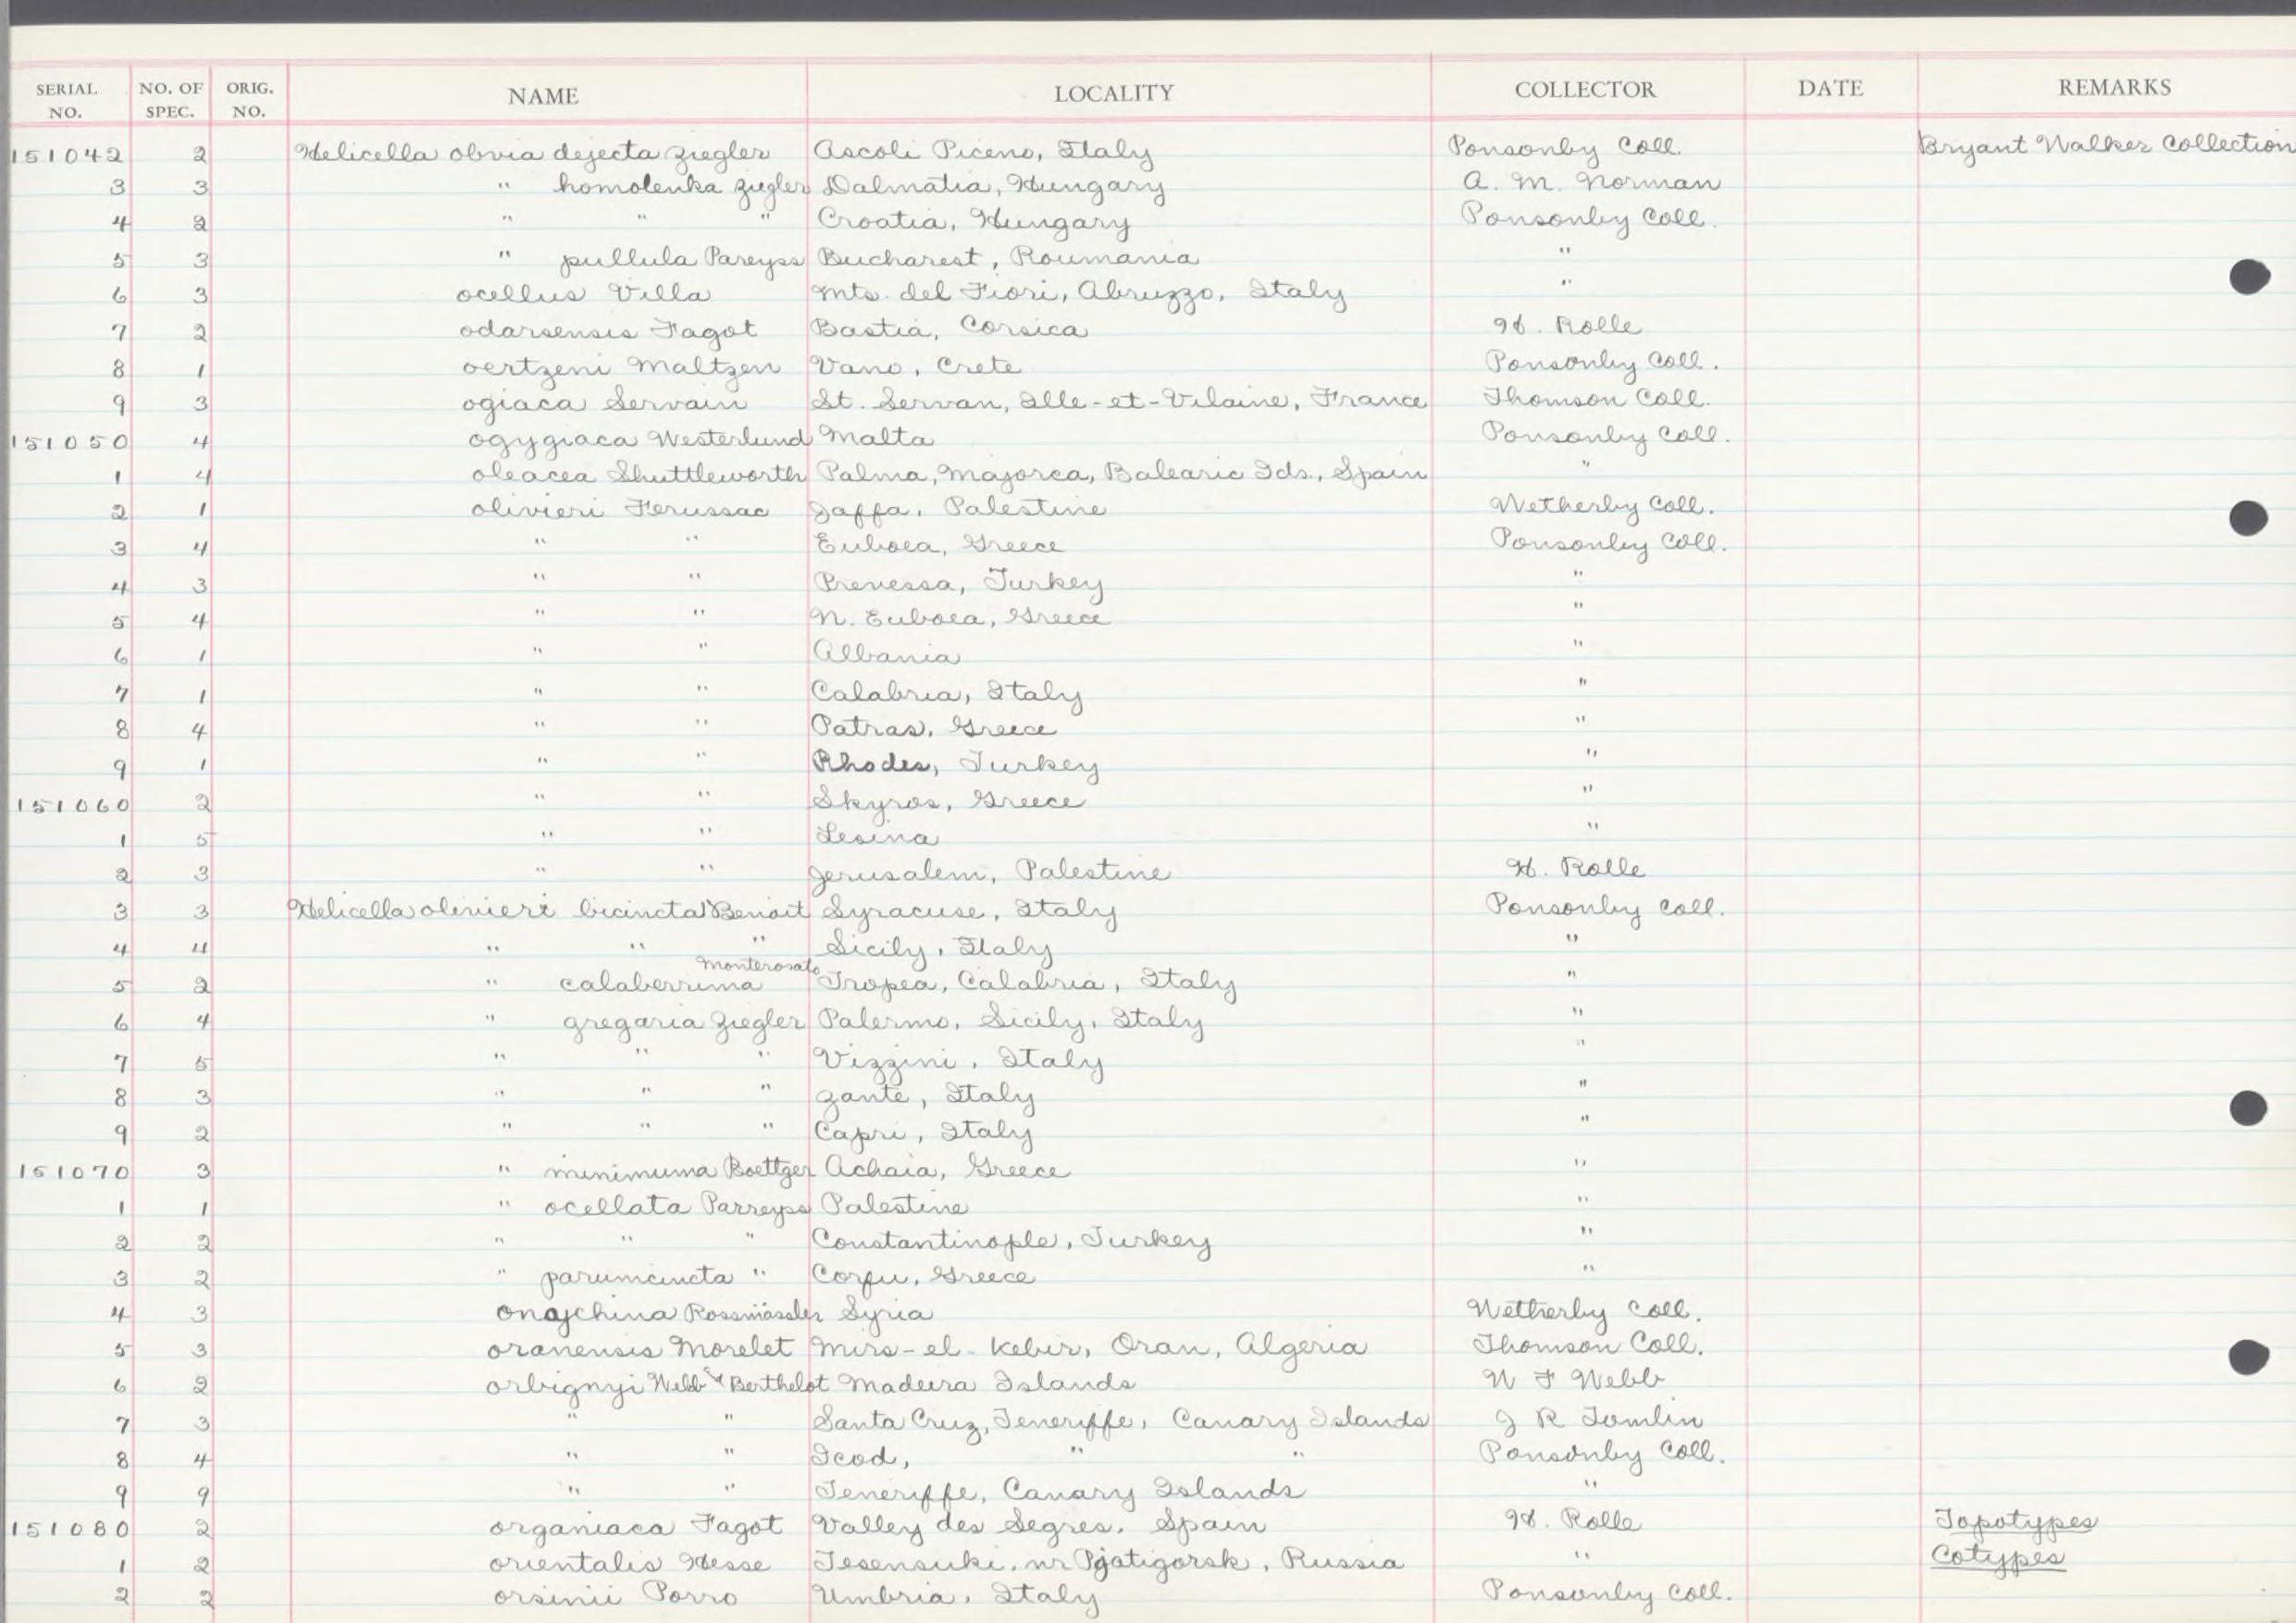 SERIAL NO. NO. OF SPEC. ORIG. NO. NAME LOCALITY COLLECTOR DATE REMARKS
151042 2 Helicella obvia dejecta Ziegler Ascoli Piceno, Italy Ponsonby Coll. Bryant Walker Collection
3 3 " homolenka Ziegler Dalmatia, Hungary A. M. Norman
4 2 " " " Croatia, Hungary Ponsonby Coll.
5 3 " pullula Pareyss Bucharest, Roumania "
6 3 ocellus Villa Mts. del Fiori, Abruzzo, Italy "
7 2 odarsensis Fagot Bastia, Corsica H. Rolle
8 1 oertzeni Maltzen Vano, Crete Ponsonby Coll.
9 3 ogiaca Servain St. Servan, Ille-et-Vilaine, France Thomson Coll.
151050 4 ogygiaca Westerlund Malta Ponsonby Coll.
1 4 oleacea Shuttleworth Palma, Majorca, Balearic Ids., Spain "
2 1 olivieri Ferussac Jaffa, Palestine Wetherby Coll.
3 4 " " Euboea, Greece Ponsonby Coll.
4 3 " " Prevessa, Turkey "
5 4 " " N. Euboea, Greece "
6 1 " " Albania "
7 1 " " Calabria, Italy "
8 4 " " Patras, Greece "
9 1 " " Rhodes, Turkey "
151060 2 " " Skyros, Greece "
1 5 " " Lesina "
2 3 " " Jerusalem, Palestine H. Rolle
3 3 Helicella olivieri bicincta Benoit Syracuse, Italy Ponsonby Coll.
4 4 " " " Sicily, Italy "
5 2 " calaberrima Monterosato Tropea, Calabria, Italy "
6 4 " gregaria Ziegler Palermo, Sicily, Italy "
7 5 " " " Vizzini, Italy "
8 3 " " " Zante, Italy "
9 2 " " " Capri, Italy "
151070 3 " minimuma Boettger Achaia, Greece "
1 1 " ocellata Parreyss Palestine "
2 2 " " " Constantinople, Turkey "
3 2 " parumcincta " Corfu, Greece "
4 3 onychina Rossmässler Syria Wetherby Coll.
5 3 oranensis Morelet Mirs-el-Kebir, Oran, Algeria Thomson Coll.
6 2 orbignyi Webb & Berthelot Madeira Islands W F Webb
7 3 " " Santa Cruz, Teneriffe, Canary Islands J R Tomlin
8 4 " " Icod, " " Ponsonby Coll.
9 9 " " Teneriffe, Canary Islands "
151080 2 organiaca Fagot Valley des Segres, Spain H. Rolle Topotypes
1 2 orientalis Hesse Tesensuki, nr Pjatigorsk, Russia " Cotypes
2 2 orsinii Porro Umbria, Italy Ponsonby Coll.